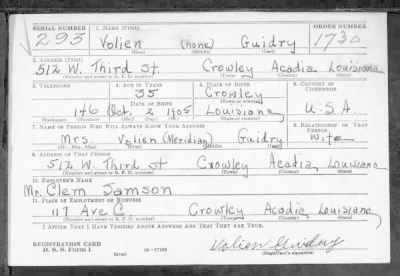 SERIAL NUMBER 1. NAME (Print) ORDER NUMBER
295 Volien (none) Guidry 1730
(First) (Middle) (Last)
2. ADDRESS (Print)
512 W. Third St. Crowley Acadia Louisiana
(Number and street or R. F. D. number) (Town) (County) (State)
3. TELEPHONE 4. AGE IN YEARS 5. PLACE OF BIRTH 6. COUNTRY OF CITIZENSHIP
35 Crowley
DATE OF BIRTH (Town or county)
146 Oct. 2 1905 Louisiana U.S.A.
(Exchange) (Number) (Mo.) (Day) (Yr.) (State or country)
7. NAME OF PERSON WHO WILL ALWAYS KNOW YOUR ADDRESS 8. RELATIONSHIP OF THAT PERSON
Mrs. Volien (Meridian) Guidry Wife
(Mr., Mrs., Miss) (First) (Middle) (Last)
9. ADDRESS OF THAT PERSON
512 W. Third St Crowley Acadia, Louisiana
(Number and street or R. F. D. number) (Town) (County) (State)
10. EMPLOYER'S NAME
Mr. Clem Jamson
11. PLACE OF EMPLOYMENT OR BUSINESS
117 Ave C Crowley Acadia Louisiana
(Number and street or R. F. D. number) (Town) (County) (State)
I AFFIRM THAT I HAVE VERIFIED ABOVE ANSWERS AND THAT THEY ARE TRUE.
REGISTRATION CARD
D. S. S. Form 1 Volien Guidry
(Registrant's signature)